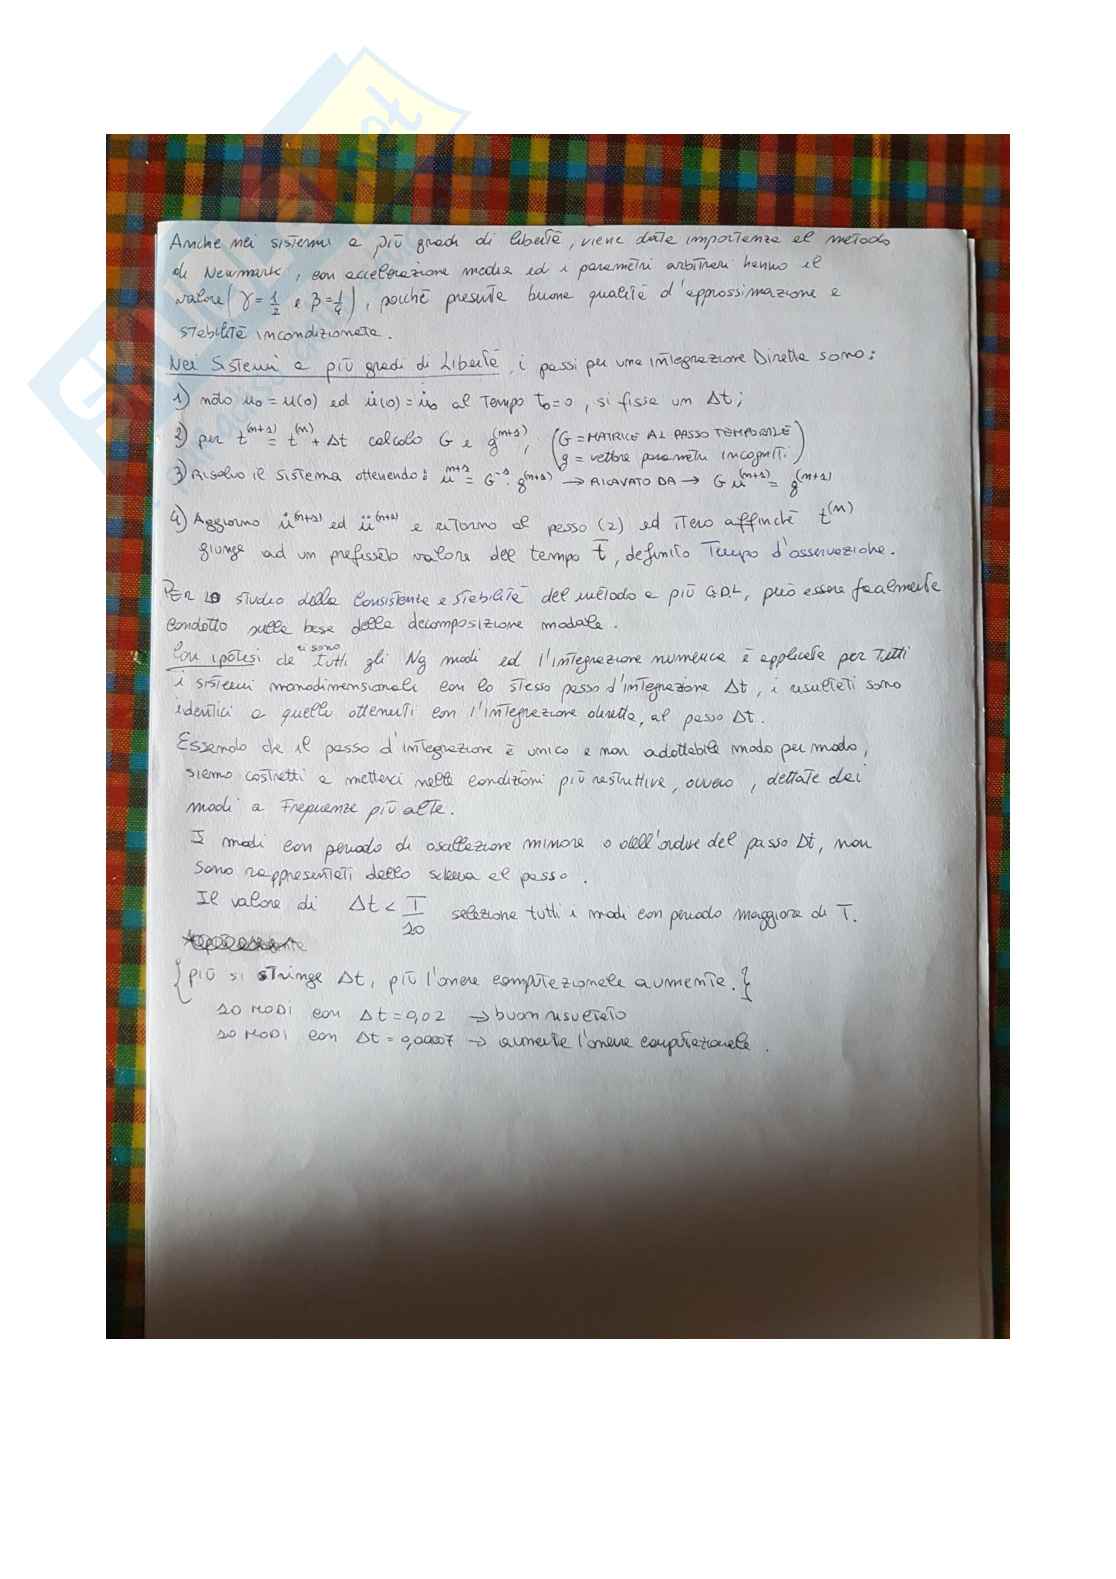 Anche nei sistemi a più gradi di libertà, viene data importanza al metodo
di Newmark, con accelerazione media ed i parametri arbitrari hanno il
valore (γ = 1/2 e β = 1/4), poiché presenta buone qualità d'approssimazione e
stabilità incondizionata.
Nei Sistemi a più gradi di Libertà, i passi per una integrazione Diretta sono:
1) noto u₀ = u(0) ed u̇(0) = u̇₀ al Tempo t₀=0, si fissa un Δt;
2) per t⁽ⁿ⁺¹⁾ = t⁽ⁿ⁾ + Δt calcolo G e g⁽ⁿ⁺¹⁾; (G = MATRICE AL PASSO TEMPORALE
g = vettore parametri incogniti.)
3) Risolvo il sistema ottenendo: uⁿ⁺¹ = G⁻¹·g⁽ⁿ⁺¹⁾ → RICAVATO DA → G u⁽ⁿ⁺¹⁾ = g⁽ⁿ⁺¹⁾
4) Aggiorno u̇⁽ⁿ⁺¹⁾ ed ü⁽ⁿ⁺¹⁾ e ritorno al passo (2) ed itero affinché t⁽ⁿ⁾
giunge ad un prefissato valore del tempo t̄, definito Tempo d'osservazione.
PER LO studio della Consistenza e stabilità del metodo a più G.D.L, può essere facilmente
condotto sulla base della decomposizione modale.
Con ipotesi che ci sono tutti gli Ng modi ed l'integrazione numerica è applicata per Tutti
i sistemi monodimensionali con lo stesso passo d'integrazione Δt, i risultati sono
identici a quelli ottenuti con l'integrazione diretta, al passo Δt.
Essendo che il passo d'integrazione è unico e non adottabile modo per modo,
siamo costretti a metterci nelle condizioni più restrittive, ovvero, dettate dai
modi a Frequenze più alte.
I modi con periodo di oscillazione minore o dell'ordine del passo Δt, non
sono rappresentati dallo schema al passo.
Il valore di Δt < T/10 seleziona tutti i modi con periodo maggiore di T.
{più si stringe Δt, più l'onere computazionale aumenta.}
10 MODI con Δt = 0,02 → buon risultato
20 MODI con Δt = 0,00007 → aumenta l'onere computazionale.